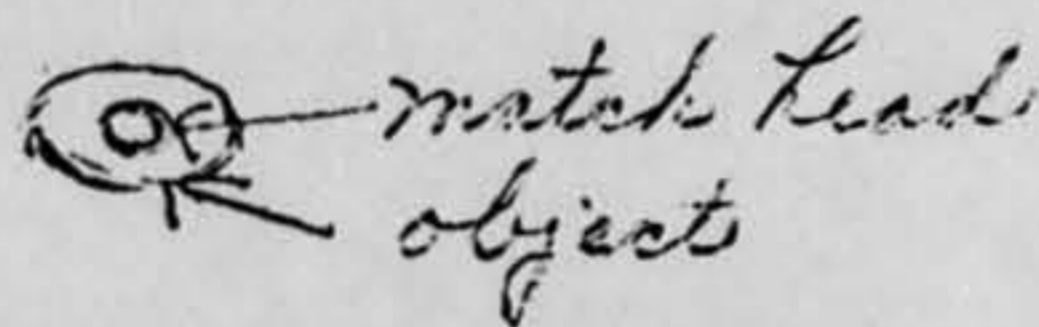 match head
object